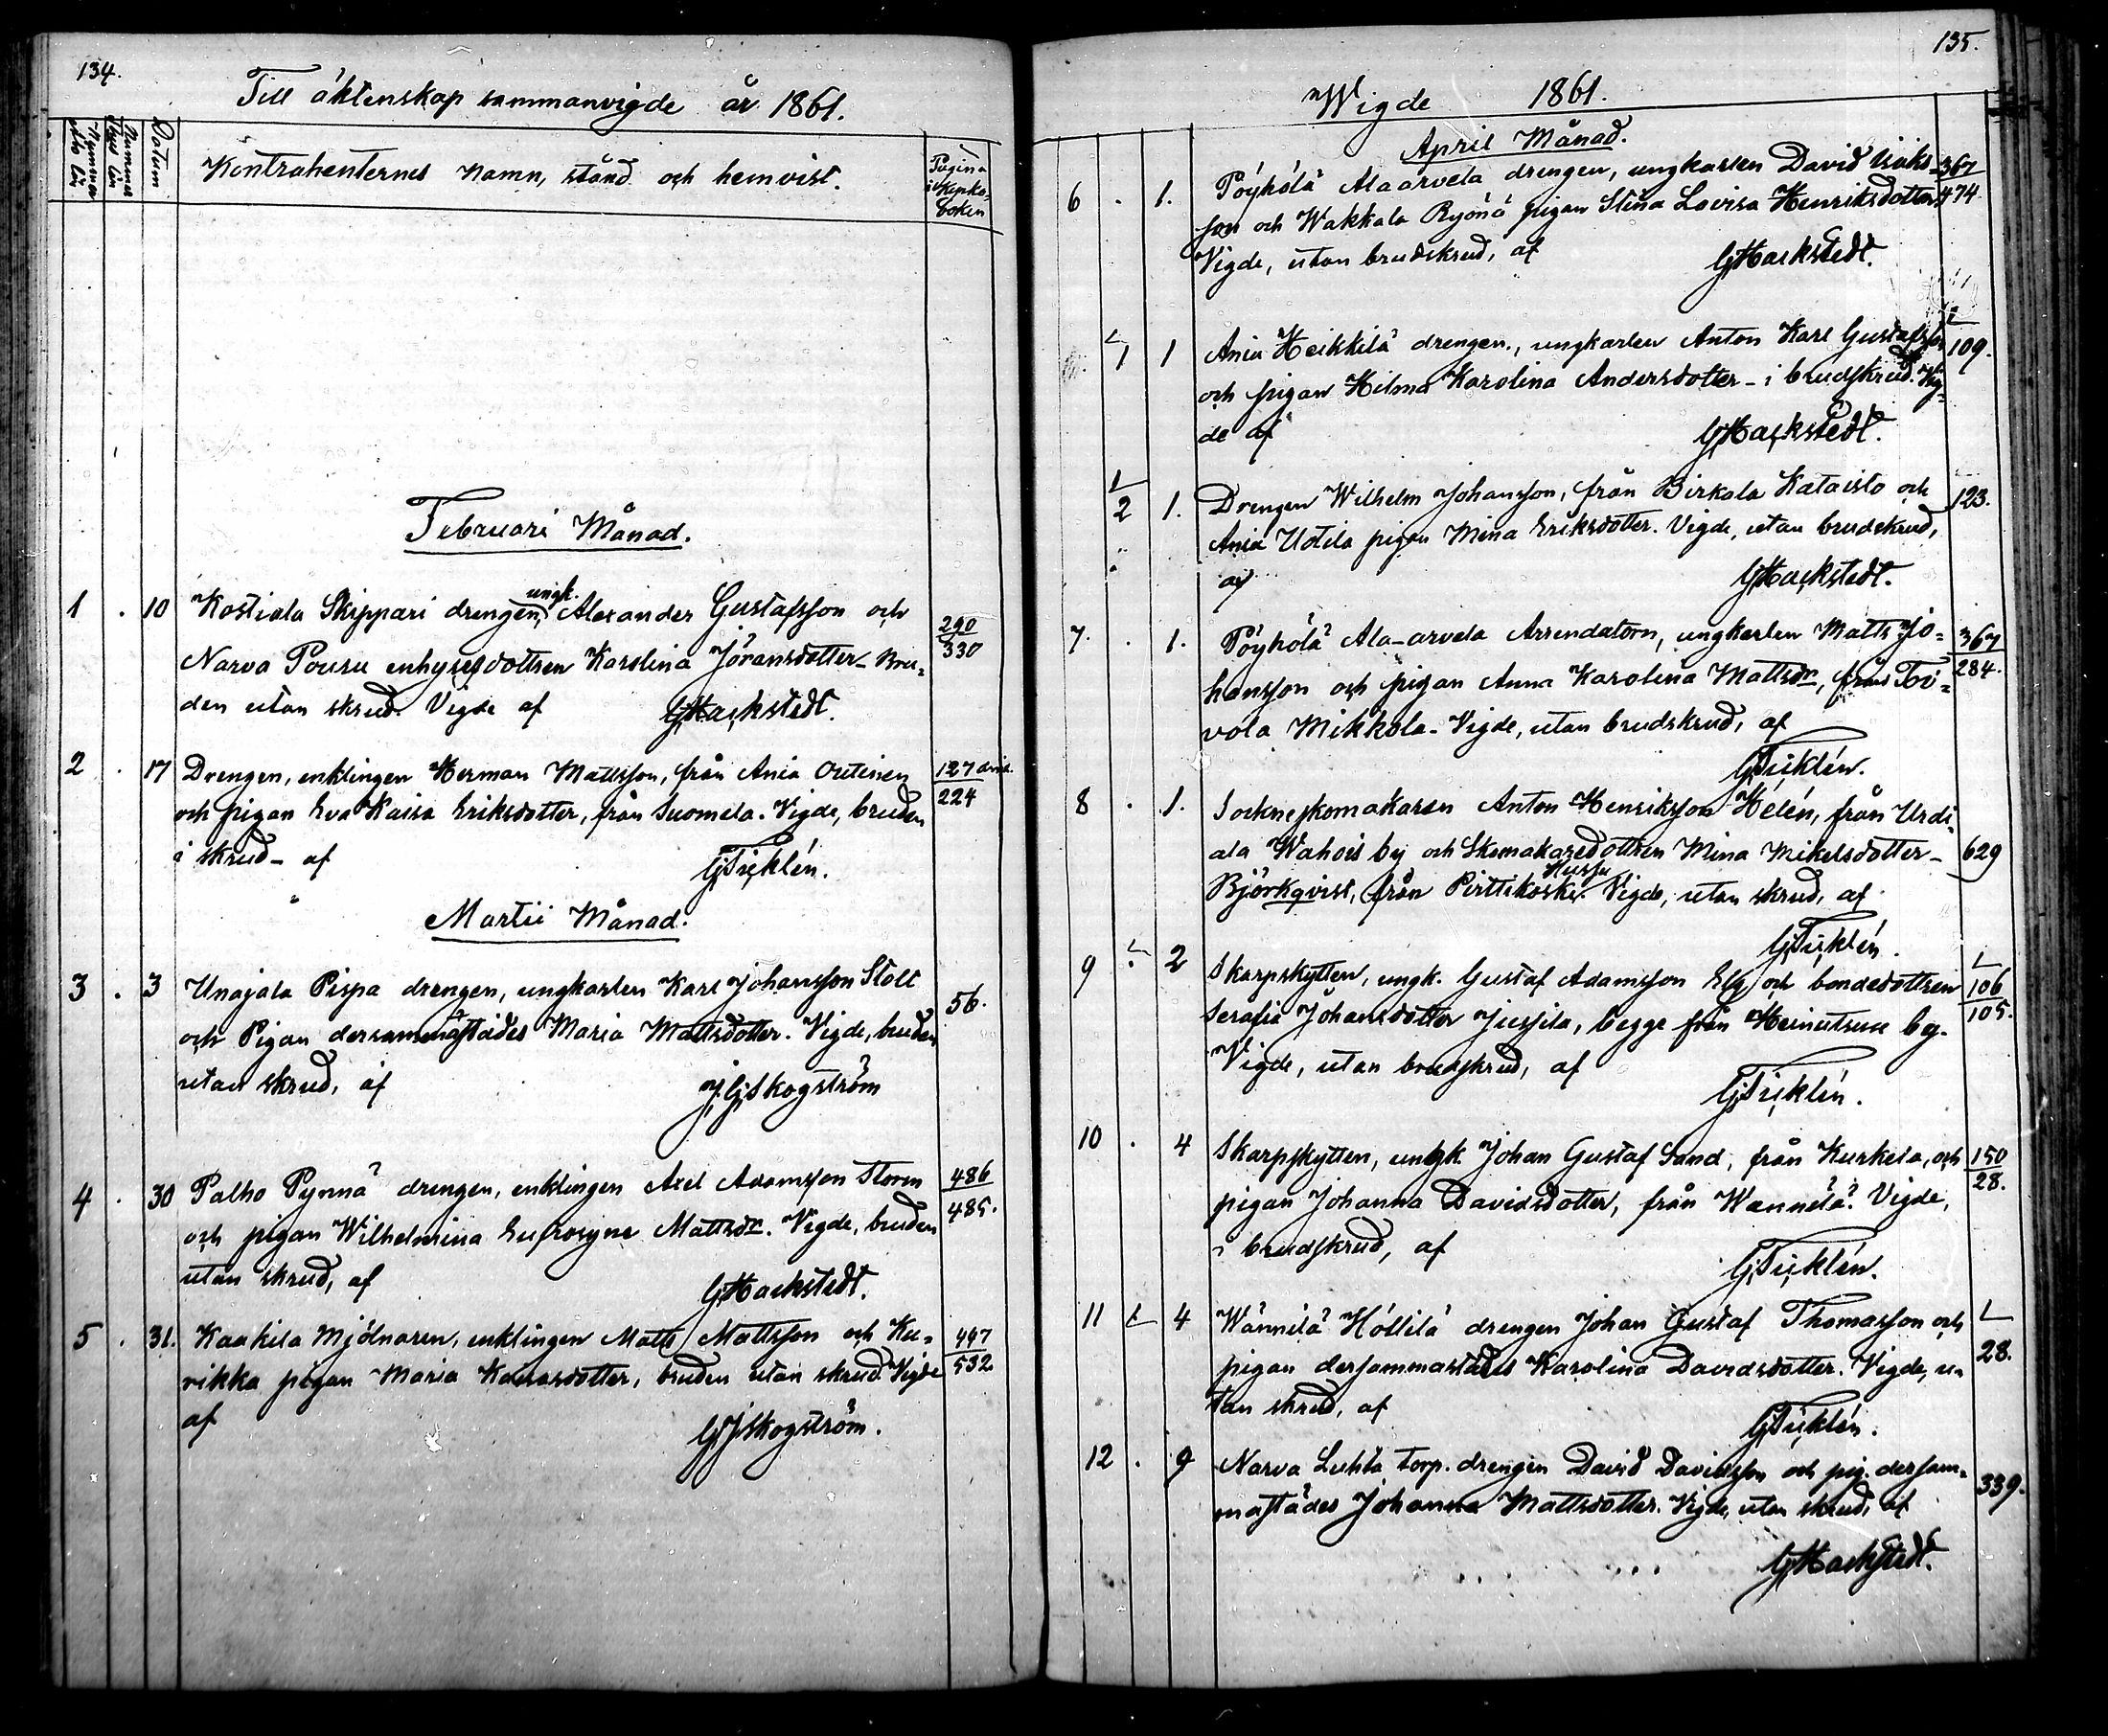 134.
Till äktenskap sammanvigde år 1861.
Datum
Kontrahenternes namn, stånd och hemvist.
Pagina
i Kyrko-
boken
Februari Månad.
1 . 10 Kostiala Skippari drengen, ungk. Alexander Gustafsson och 290
Narva Pousu enhysesdottren Karolina Jöransdotter - Bru- 330
den utan skrud. Vigde af GHackstedt.
2 . 17 Drengen, enklingen Herman Mattsson, från Ania Outinen 127
och pigan Eva Kaisa Eriksdotter, från Suomela. Vigde, bruden 224
i skrud - af GTicklén.
Martii Månad.
3 . 3 Unajala Pispa drengen, ungkarlen Karl Johansson Stolt 56.
och Pigan dersammastädes Maria Mattsdotter. Vigde, bruden
utan skrud, af J.G.Skogström
4 . 30 Palho Pynnä drengen, enklingen Axel Adamsson Storm 486
och pigan Wilhelmina Eufrosyne Mattsdr. Vigde, bruden 485.
utan skrud, af GHackstedt.
5 . 31. Kaakila Mjölnaren, enklingen Matts Mattsson och Ku- 447
rikka pigan Maria dotter, bruden utan skrud. Vigde 532
af GJSkogström.
135.
Wigde 1861.
April Månad.
6 . 1. Pöyhölä Alaarvela drengen, ungkarlen David Isaks- 367
son och Wakkala Ryönä pigan Stina Lovisa Henriksdotter 474
Vigde, utan brudskrud, af GHackstedt.
1 1 Ania Heikkilä drengen, ungkarlen Anton Karl Gustafsson 109.
och pigan Hilma Karolina Andersdotter - i brudskrud. Vig-
de af GHackstedt.
2 1. Drengen Wilhelm Johansson, från Birkala Kataisto och 123.
Ania Uotila pigan Mina Eriksdotter. Vigde, utan brudskrud,
af GHackstedt.
7 . 1. Pöyhölä Ala-arvela Arrendatorn, ungkarlen Matts Jo- 367
hansson och pigan Anna Karolina Mattsdr, från Toi- 284.
vola Mikkola - Vigde, utan brudskrud, af
GTicklén.
8 . 1. Sockneskomakaren Anton Henriksson Helén, från Urdi-
ala Wahois by och Skomakaredottren Mina Mikelsdotter - 629
Björkqvist, från Pirttikoski Vigde, utan skrud, af
GTicklén.
9 2 Skarpskytten, ungk. Gustaf Adamsson Elg och bondedottren 106
Serafia Johansdotter Jussila, begge från Heinutsuu by - 105.
Vigde, utan brudskrud, af
GTicklén.
10 . 4 Skarpskytten, ungk. Johan Gustaf Sand, från Kurkela, och 150
pigan Johanna Davidsdotter, från Wännilä. Vigde, 28.
i brudskrud, af
GTicklén.
11 4 Wännilä Höllilä drengen Johan Gustaf Thomasson och
pigan dersammastädes Karolina Davidsdotter. Vigde, u- 28.
tan skrud, af
GTicklén.
12 . 9 Narva Luhta torp. drengen David Davidsson och pig. dersam- 339.
mastädes Johanna Mattsdotter. Vigde, utan skrud, af
GHackstedt.